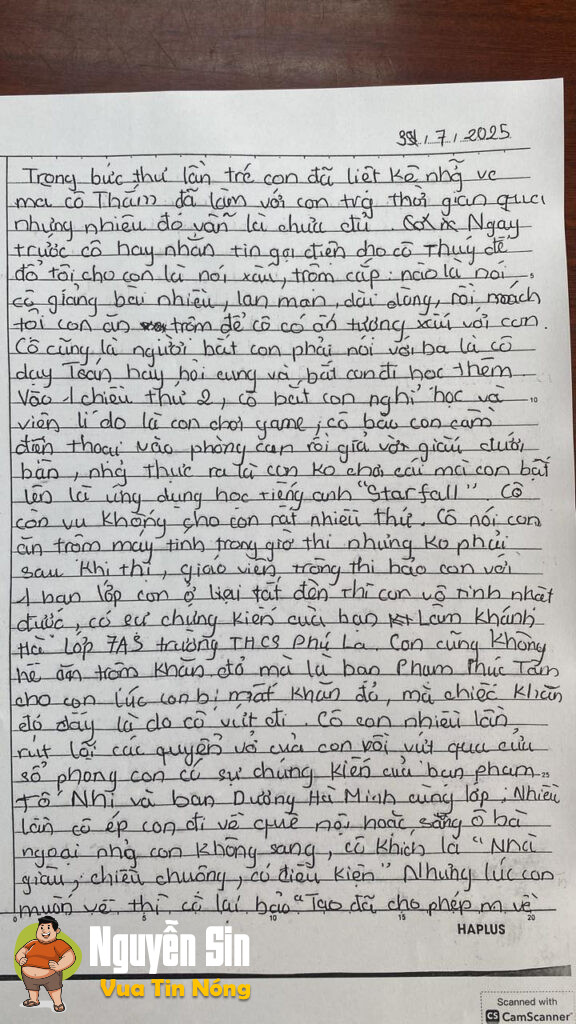 31/7/2025
Trong bức thư lần trc con đã liệt kê nhg vc
mà cô Thắm đã làm với con trg thời gian qua
nhưng nhiêu đó vẫn là chưa đủ. Ngay
trước cô hay nhắn tin gọi điện cho cô Thuý để
đổ tội cho con là nói xấu, trộm cắp: nào là nói
cô giảng bài nhiều, lan man, dài dòng, rồi mách
tội con ăn trộm để cô có ấn tượng xấu với con.
Cô cũng là người bắt con phải nói với ba là cô
dạy Toán hay, hời cung và bắt con đi học thêm
Vào 1 chiều thứ 2, cô bắt con nghỉ học và
viện lí do là con chơi game; cô bảo con cầm
điện thoại vào phòng con rồi giả vờ giấu dưới
bàn, nhg thực ra là con ko chơi cái mà con bật
lên là ứng dụng học tiếng anh "Starfall". Cô
còn vu khống cho con rất nhiều thứ. Cô nói con
ăn trộm máy tính trong giờ thi nhưng ko phải
sau khi thi, giáo viên trông thi bảo con với
1 bạn lớp con ở lại tắt đèn thì con vô tình nhặt
được, có sự chứng kiến của bạn Lâm Khánh
Hà lớp 7A5 trường THCS Phú La. Con cũng không
hề ăn trộm khăn đỏ mà là bạn Phạm Phúc Tâm
cho con lúc con bị mất khăn đỏ, mà chiếc khăn
đó đấy là do cô vứt đi. Cô còn nhiều lần
rút lõi các quyển vở của con rồi vứt qua cửa
sổ phòng con có sự chứng kiến của bạn phạm
Tố Nhi và bạn Dương Hà Minh cùng lớp; Nhiều
lần cô ép con đi về quê nội hoặc sang ô bà
ngoại nhg con không sang, cô khích là "Nhà
giàu, chiều chuộng, có điều kiện" Nhưng lúc con
muốn về thì cô lại bảo "Tao đã cho phép m về
5
10
25
0 5 10 15 20
HAPLUS
Nguyễn Sin
Vua Tin Nóng
Scanned with
CS CamScanner